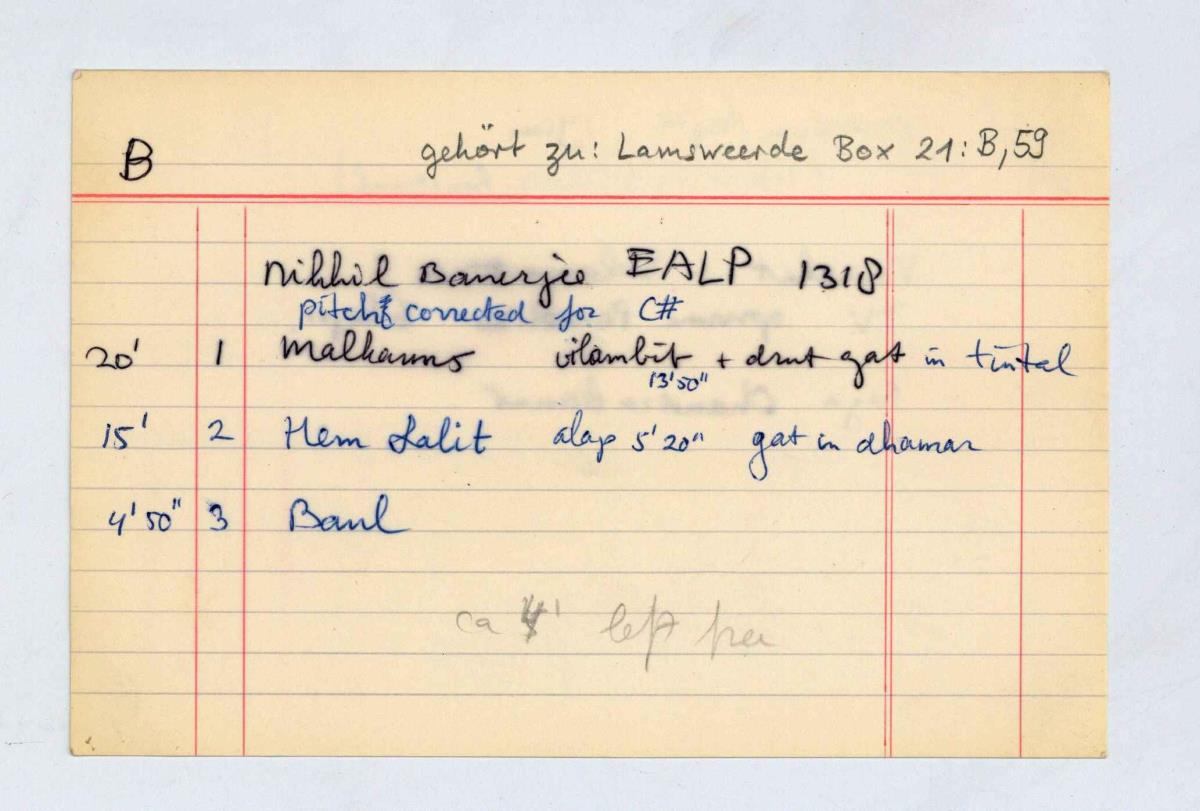 B gehört zu: Lamsweerde Box 21: B,59
Nikhil Banerjee EALP 1318
pitch corrected for C#
20' 1 Malkauns vilambit + drut gat in tintal
13'50"
15' 2 Hem Lalit alap 5'20" gat in dhamar
4'50" 3 Baul
ca left free